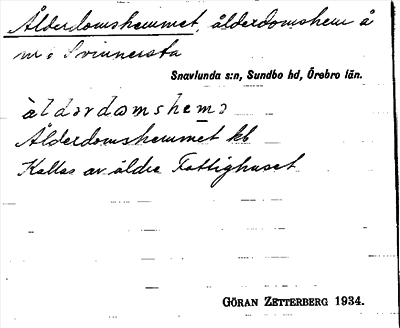 Ålderdomshemmet, ålderdomshem å
nr 1 Svinnersta
Snavlunda s:n, Sundbo hd, Örebro län.
àldərdωmshemə
Ålderdomshemmet kb
Kallas av äldre Fattighuset
GÖRAN ZETTERBERG 1934.